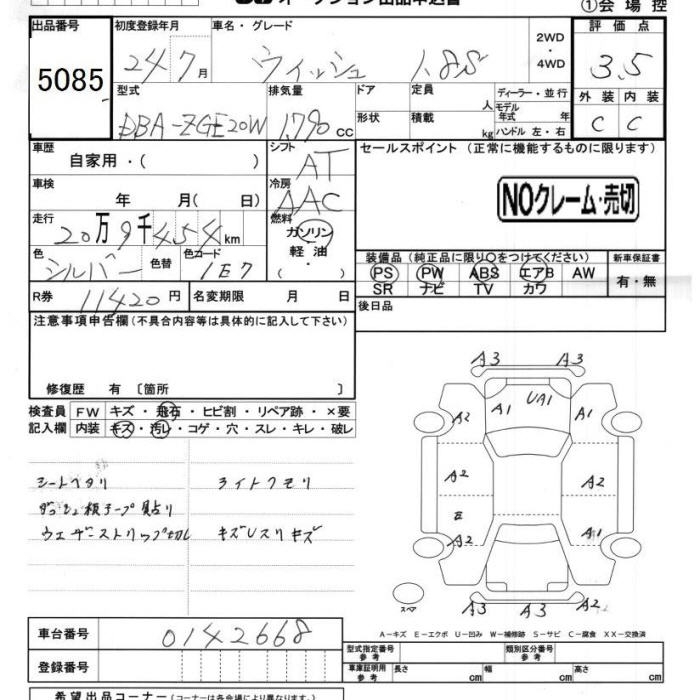 オークション出品申込書
①会場控
出品番号
5085
初度登録年月
24 7月
車名・グレード
ウィッシュ 1.8S
2WD・4WD
評価点
3.5
外装 内装
C C
型式
DBA-ZGE20W
排気量
1790 CC
ドア
形状
定員 人
積載 kg
ディーラー・並行
モデル年式 年
ハンドル 左・右
車歴
自家用・( )
シフト
AT
セールスポイント (正常に機能するものに限ります)
NOクレーム・売切
車検
年 月( 日)
冷房
AAC
走行
20万9千454km
燃料
ガソリン
軽油
・( )
色
シルバー
色替
色コード
1E7
装備品 (純正品に限り○をつけてください)
PS PW ABS エアB AW
SR ナビ TV カワ
新車保証書
有・無
R券 11420円
名変期限 月 日
後日品
注意事項申告欄 (不具合内容等は具体的に記入して下さい)
修復歴 有 〔箇所 〕
検査員記入欄
FW キズ・飛石・ヒビ割・リペア跡・×要
内装 キズ・汚レ・コゲ・穴・スレ・キレ・破レ
シートヘタリ ライトクモリ
ダッシュ板テープ貼り
ウェザーストリップ切レ キズUスリキズ
A3 A3
A1 UA1
A2 A1
A2 A2
E
A2 A1
A3 A3 A2
スペア
A-キズ E-エクボ U-凹み W-補修跡 S-サビ C-腐食 XX-交換済
車台番号
0142668
登録番号
型式指定番号 参考
類別区分番号 参考
車庫証明用 参考
長さ cm 幅 cm 高さ cm
希望出品コーナー (コーナーは各会場により異なります)